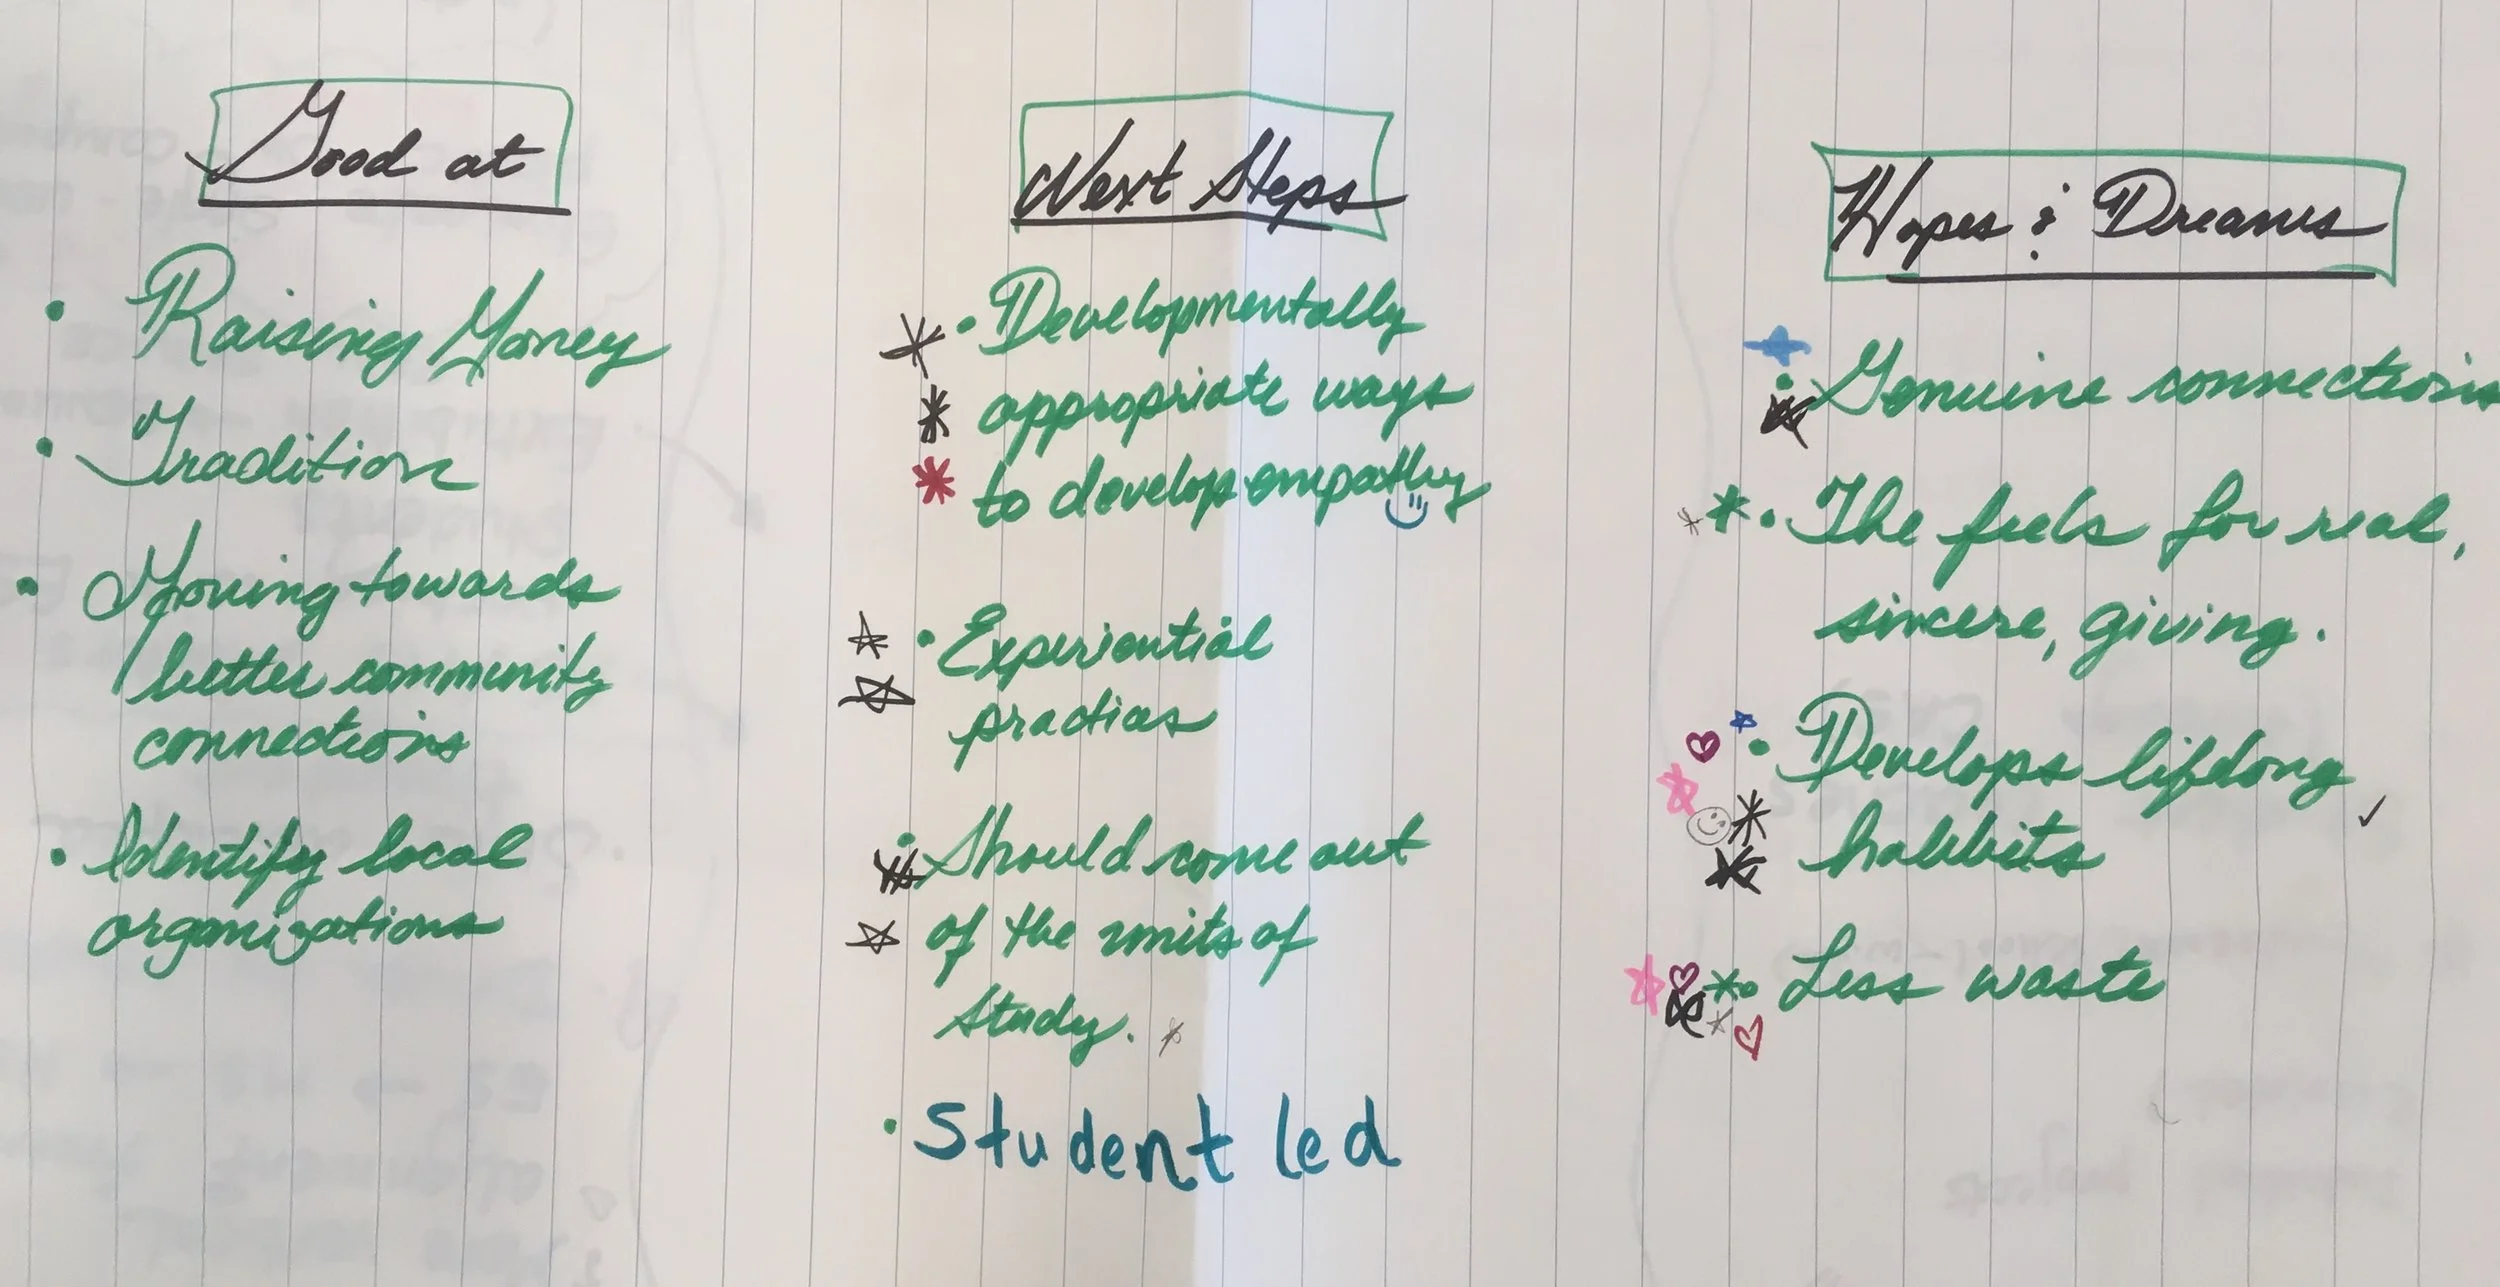 Good at
• Raising Money
• Tradition
• Moving towards
better community
connections
• Identify local
organizations
Next Steps
• Developmentally
appropriate ways
to develop empathy
• Experiential
practices
• Should come out
of the units of
Study.
• Student led
Hopes & Dreams
• Genuine connections
• The feels for real,
sincere, giving.
• Develops lifelong
habbits
• Less waste